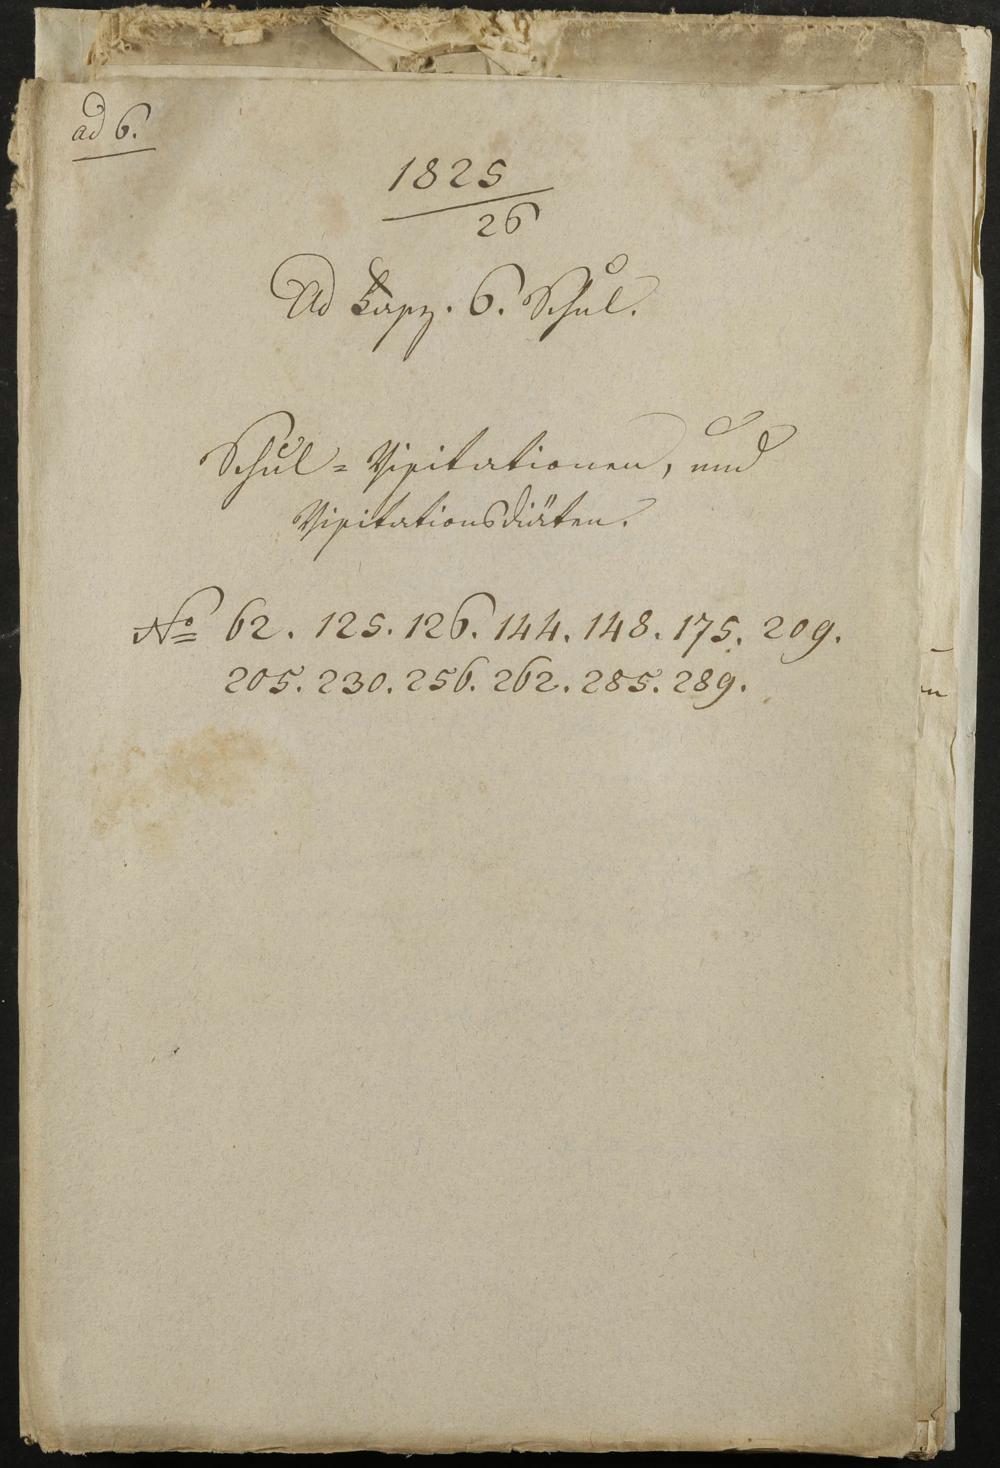 ad 6.
1825
26
Ad Fasz. 6. Schul.
Schul = Visitationen, und
Visitationsdiäten.
No 62. 125. 126. 144. 148. 175. 209.
205. 230. 256. 262. 285. 289.